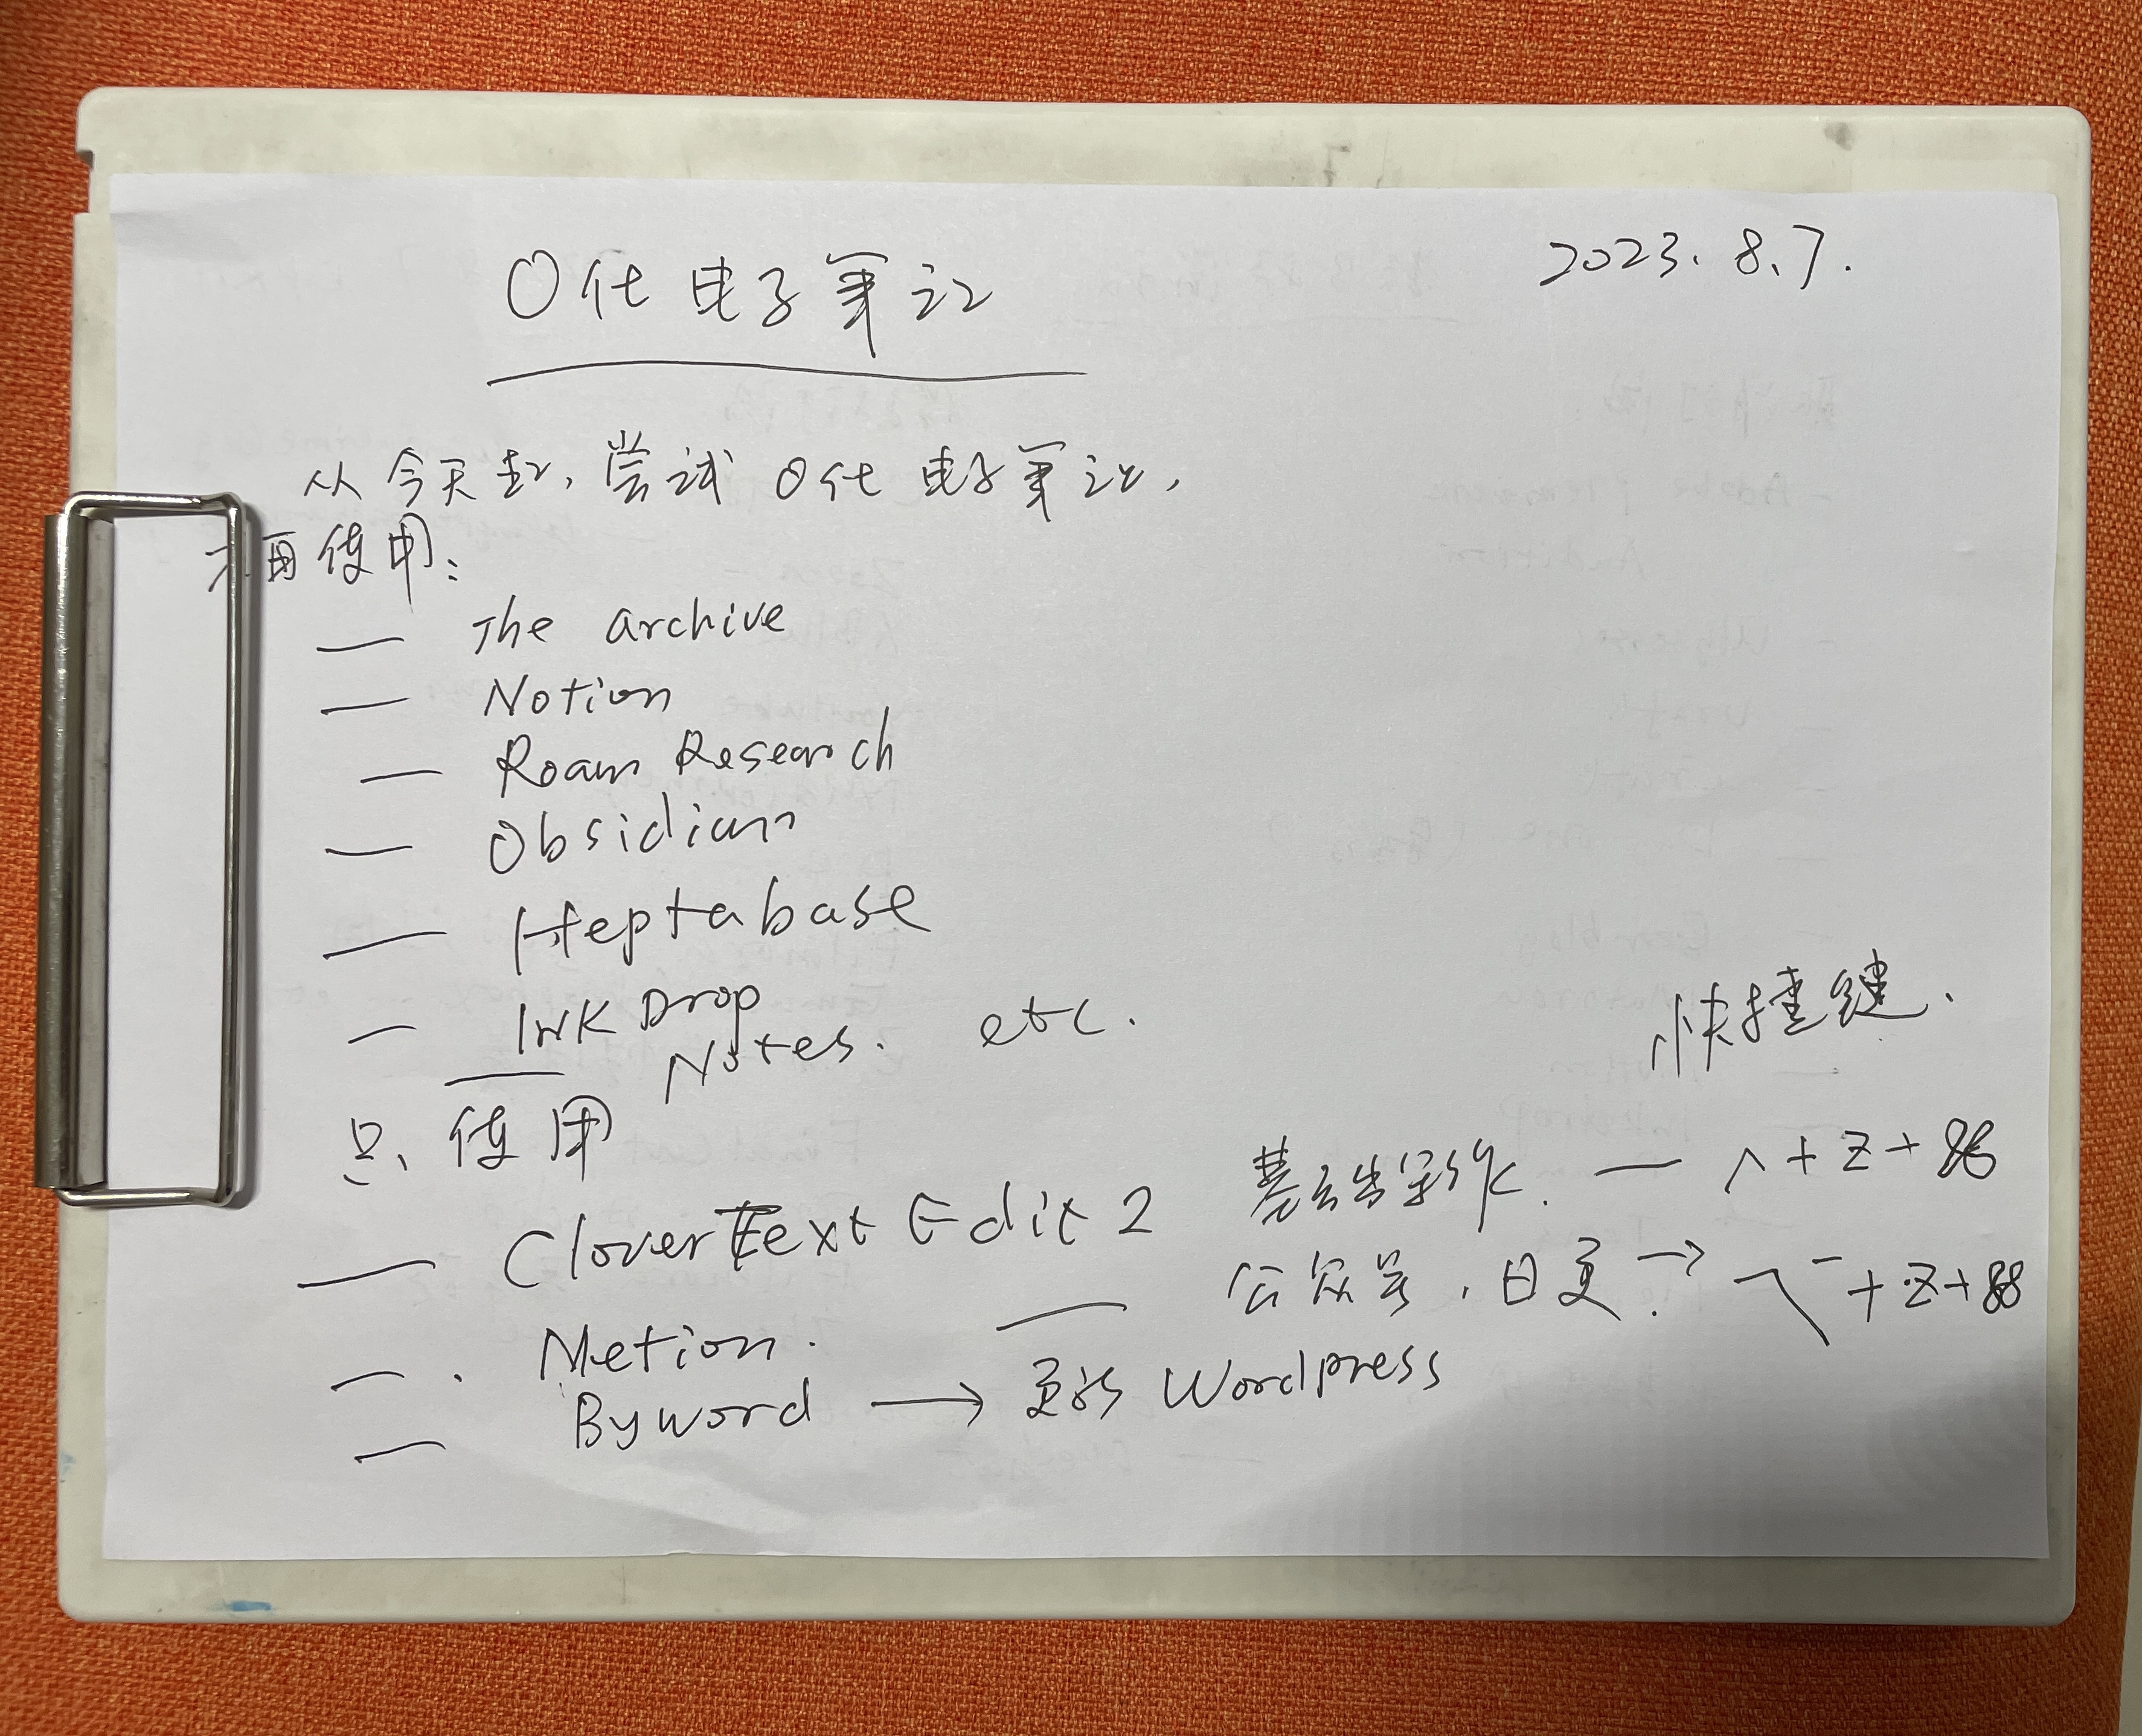 2023.8.7.
0代电子笔记
从今天起,尝试0代电子笔记,
不再使用:
— The archive
— Notion
— Roam Research
— Obsidian
— Heptabase
— InkDrop
Notes. etc.
快捷键.
只使用
— CloverText Edit 2 写作. — ^+Z+⌘
— 公众号,日更. → ⌥+Z+⌘
— Metion.
— Byword → 更新 Wordpress